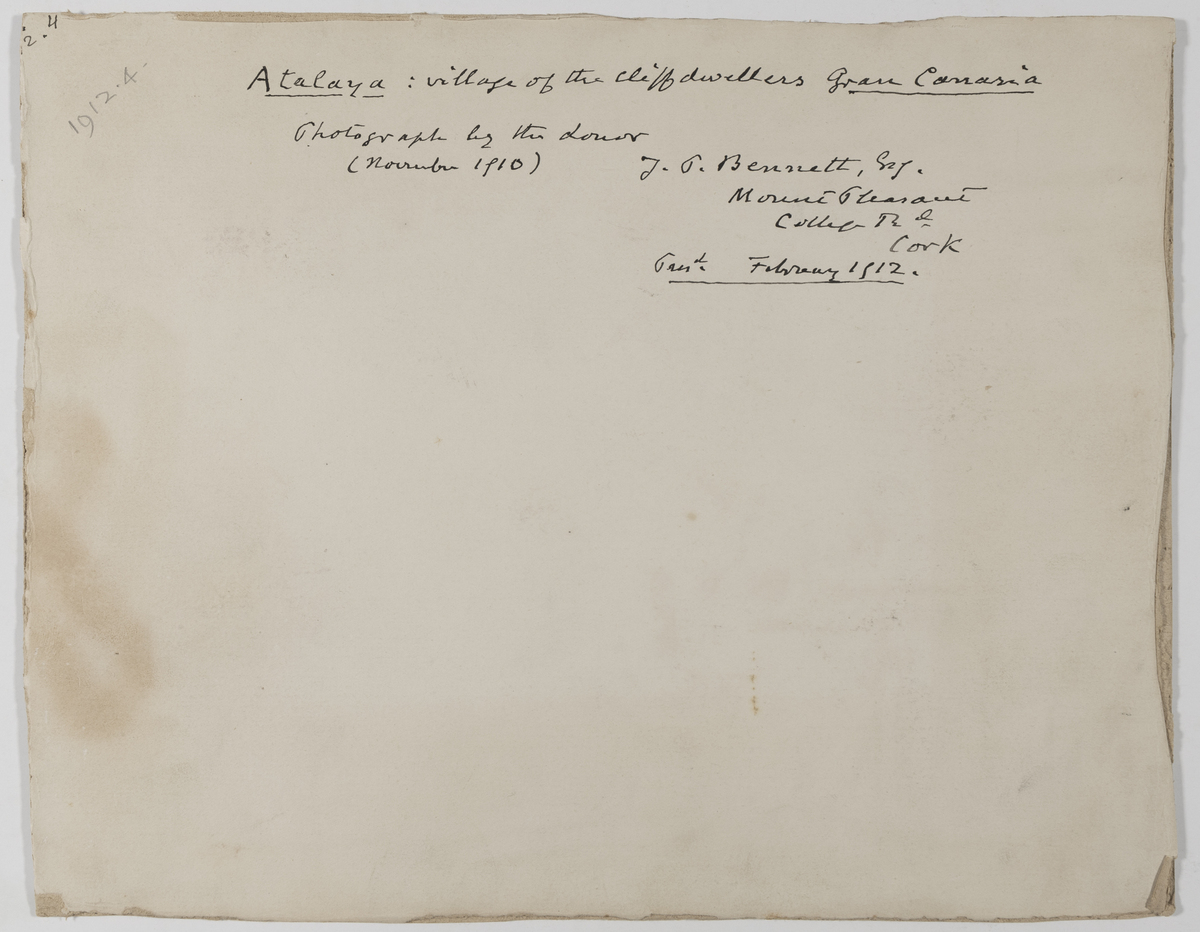 2.4
1912.4.
Atalaya : village of the cliff dwellers Gran Canaria
Photograph by the donor
(November 1910)
J. P. Bennett, Esq.
Mount Pleasant
College Rd
Cork
Presd. February 1912.